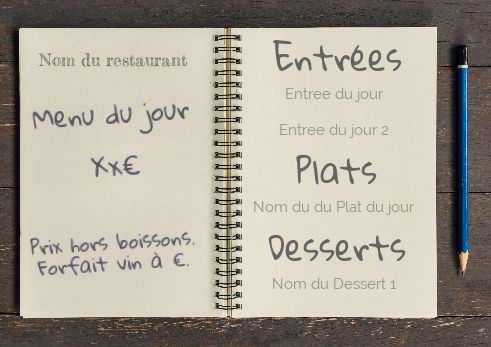 Nom du restaurant
Menu du jour
Xx€
Prix hors boissons.
Forfait vin à €.
Entrées
Entree du jour
Entree du jour 2
Plats
Nom du du Plat du jour
Desserts
Nom du Dessert 1